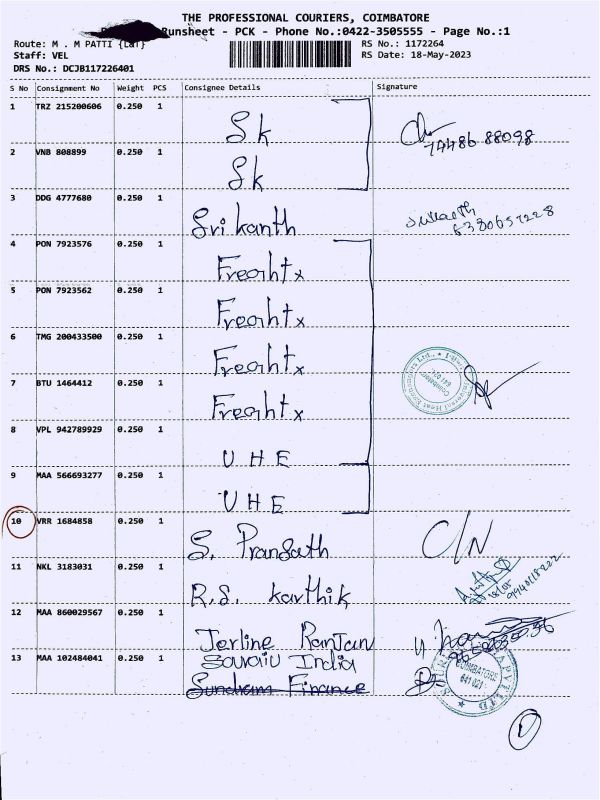 THE PROFESSIONAL COURIERS, COIMBATORE
Runsheet - PCK - Phone No.:0422-3505555 - Page No.:1
Route: M . M PATTI {L&T}
RS No.: 1172264
Staff: VEL
RS Date: 18-May-2023
DRS No.: DCJB117226401
S No Consignment No Weight PCS Consignee Details Signature
1 TRZ 215200606 0.250 1 Sk
74486 88098
2 VNB 808899 0.250 1 Sk
3 DDG 4777680 0.250 1 Srikanth
6380657228
4 PON 7923576 0.250 1 Freaihtx
5 PON 7923562 0.250 1 Freaihtx
6 TMG 200433500 0.250 1 Freaihtx
7 BTU 1464412 0.250 1 Freaihtx
8 VPL 942789929 0.250 1 U H E
9 MAA 566693277 0.250 1 U H E
10 VRR 1684858 0.250 1 S. Prangath C/N
11 NKL 3183031 0.250 1 R.S. Karthik
12 MAA 860029567 0.250 1 Jerline Ranjan
13 MAA 102484041 0.250 1 India
Sundram Finance
COIMBATORE
641 021
1